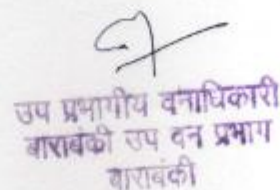 उप प्रभागीय वनाधिकारी
बाराबंकी उप वन प्रभाग
बाराबंकी